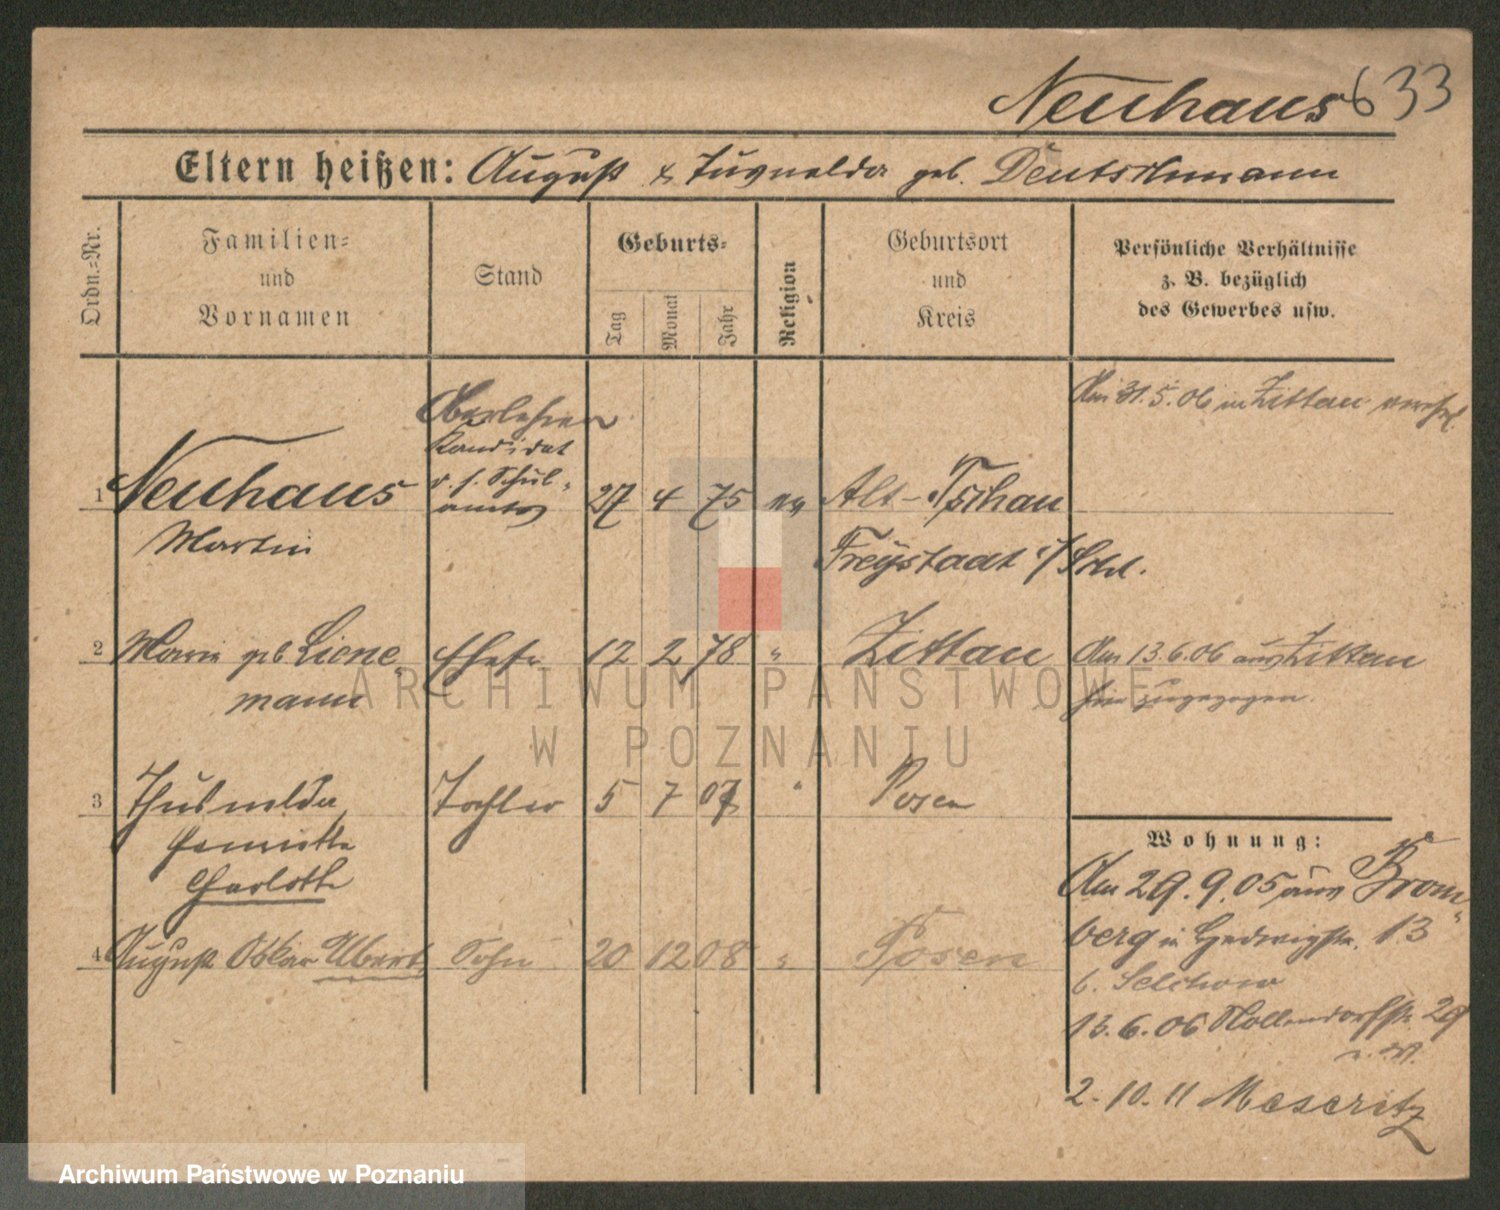 Neuhaus 633
Eltern heißen: August & Tusnelda geb. Deutschmann
Ordn.=Nr.
Familien=
und
Vornamen
Stand
Geburts=
Tag
Monat
Jahr
Religion
Geburtsort
und
Kreis
Persönliche Verhältnisse
z. B. bezüglich
des Gewerbes usw.
Am 31.5.06 in Zittau verehel.
Oberlehrer
Kandidat
d. h. Schul-
amts
1 Neuhaus 27 4 75 ev Alt-Tschau
Martin
Freystadt i/Schl.
2 Marie geb Liene- Ehefr 12 2 78 " Zittau
mann
Am 13.6.06 aus Zittau
hier zugezogen.
3 Thusnelda Tochter 5 7 07 " Posen
Henriette
Charlotte
4 August Oskar Albert Sohn 20 12 08 " Posen
Wohnung:
Am 29.9.05 aus Brom-
berg in Hedwigstr. 13
b. Selchow
13.6.06 Nollendorfstr 29
2.10.11 Meseritz
ARCHIWUM PAŃSTWOWE
W POZNANIU
Archiwum Państwowe w Poznaniu